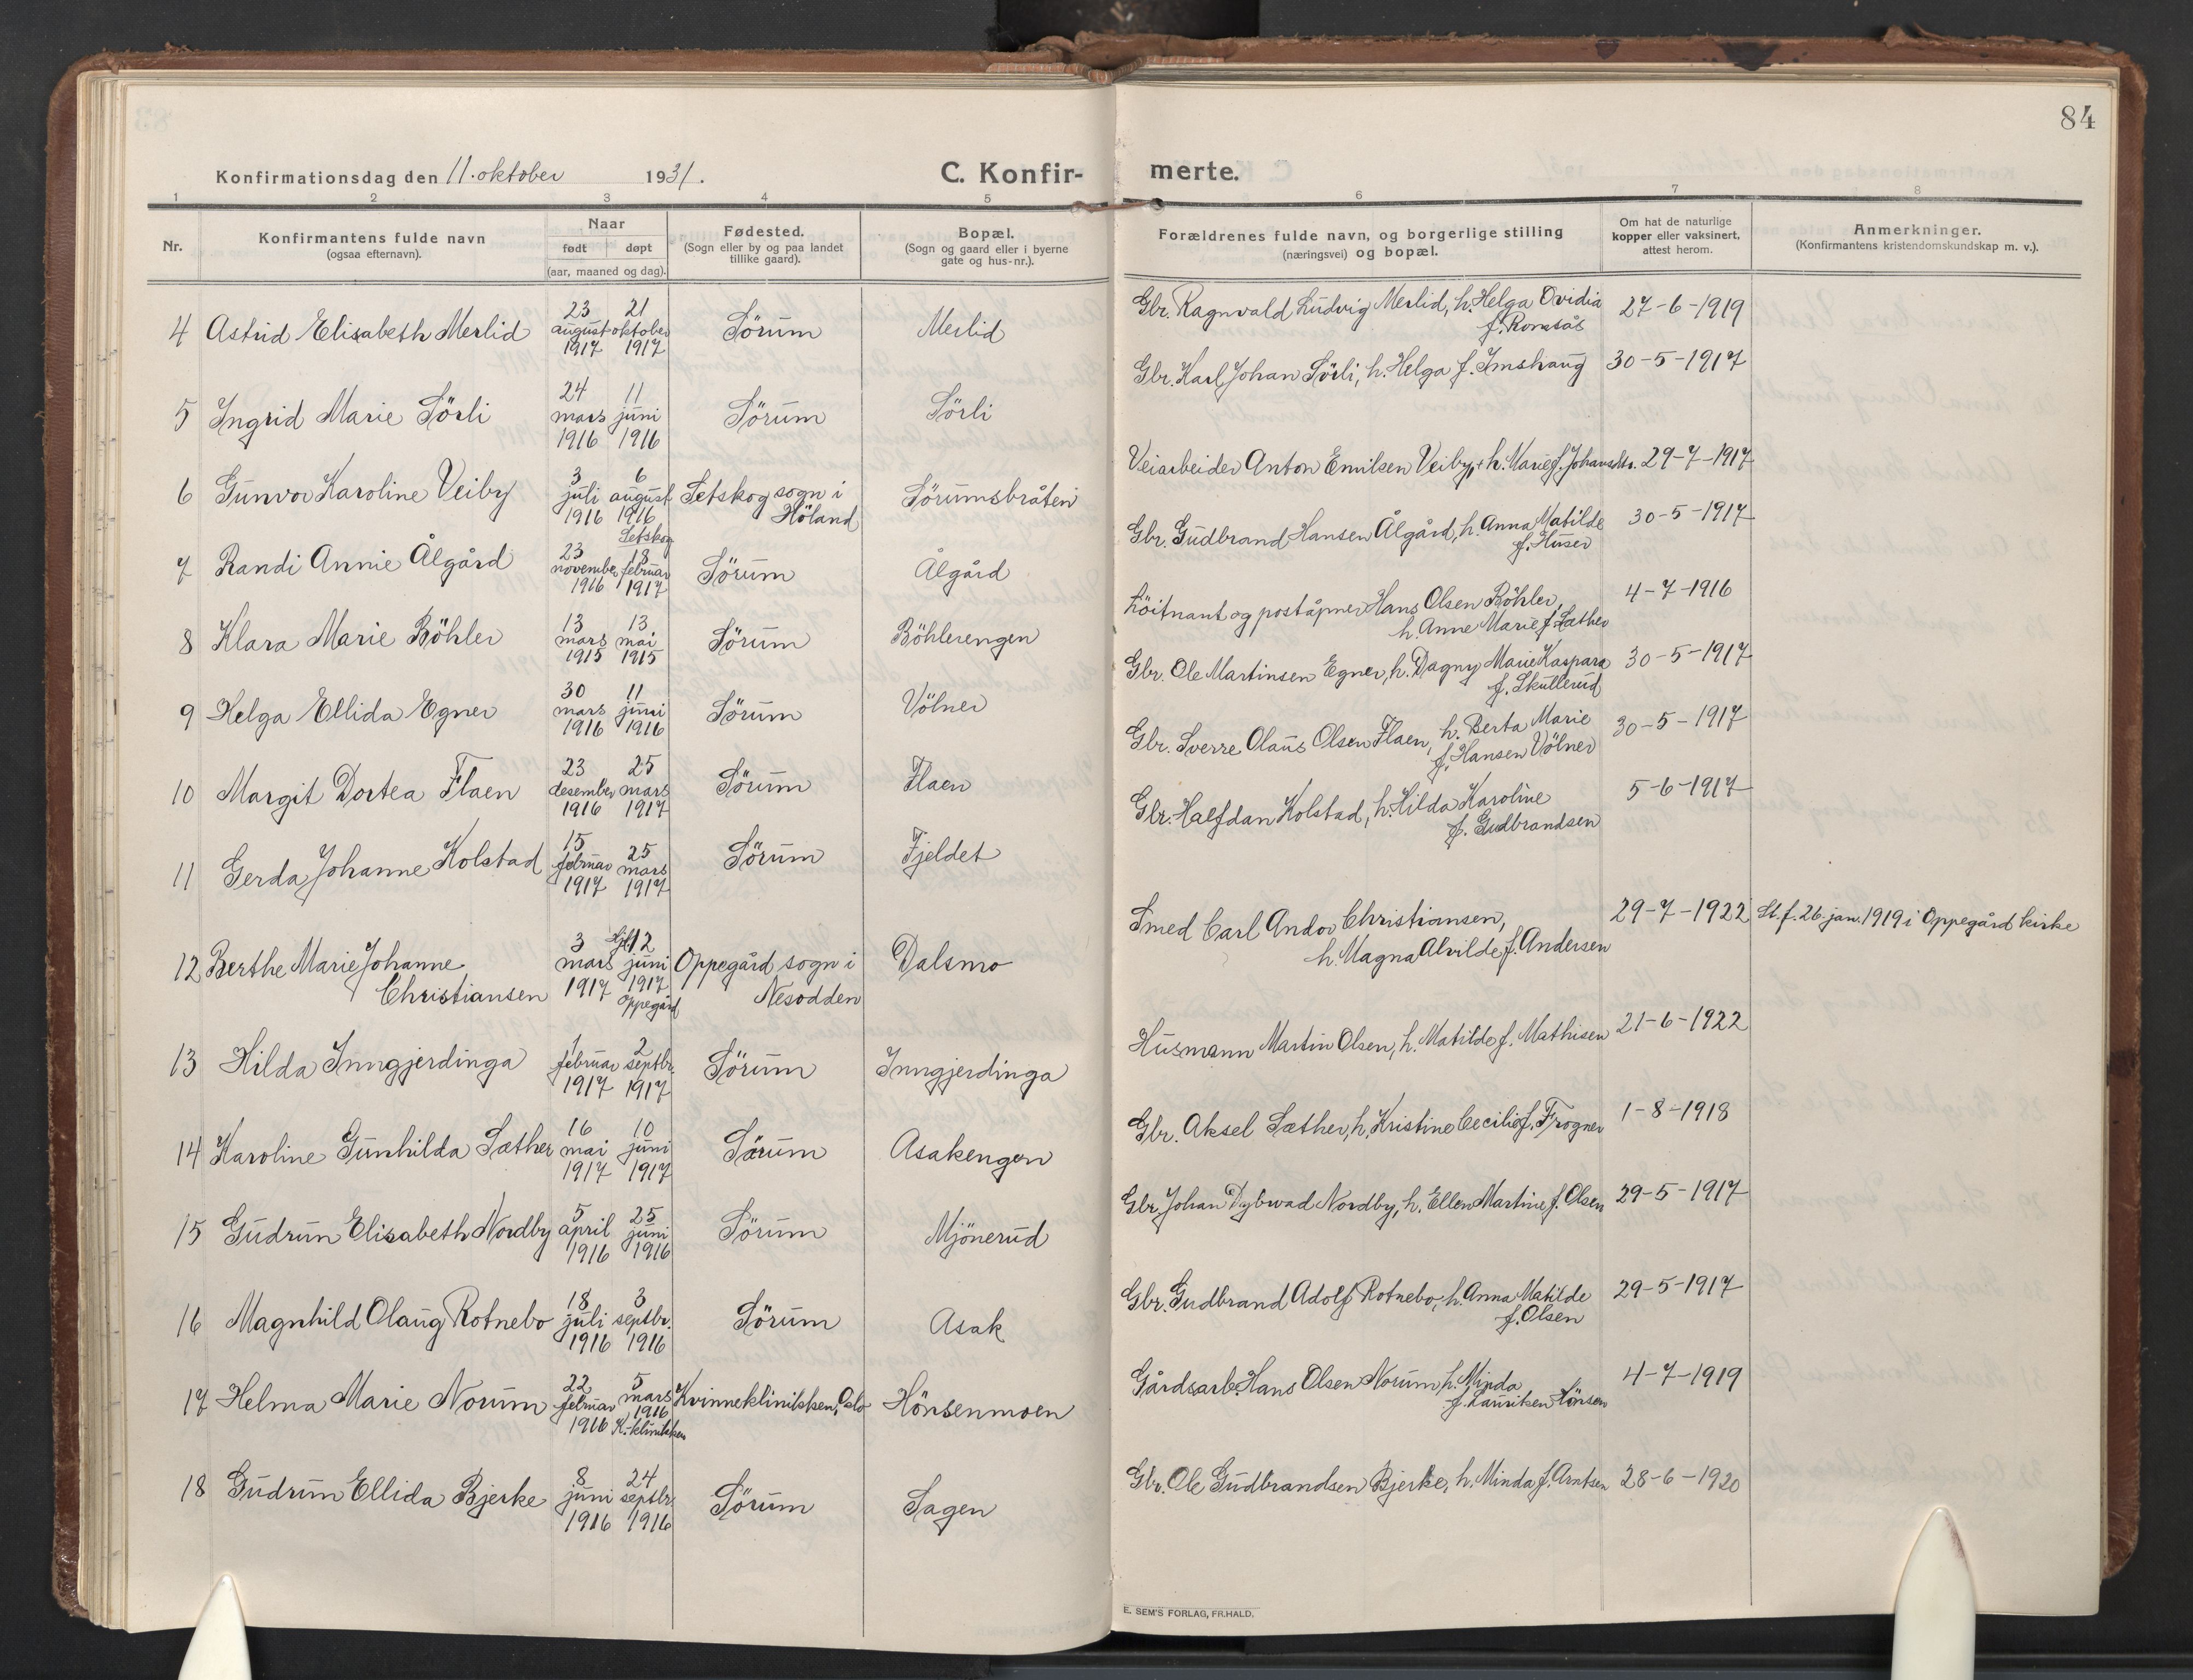 84
Konfirmationsdag den 11. oktober 1931.
C. Konfir-
merte.
1 2 3 4 5 6 7 8
Nr.
Konfirmantens fulde navn
(ogsaa efternavn).
Naar
født døpt
(aar, maaned og dag).
Fødested.
(Sogn eller by og paa landet
tillike gaard).
Bopæl.
(Sogn og gaard eller i byerne
gate og hus-nr.).
Forældrenes fulde navn, og borgerlige stilling
(næringsvei) og bopæl.
Om hat de naturlige
kopper eller vaksinert,
attest herom.
Anmerkninger.
(Konfirmantens kristendomskundskap m. v.).
23 21
4 Astrid Elisabeth Merlid august oktober Sörum Merlid
1917 1917
Gbr. Ragnvald Ludvig Merlid, h. Helga Ovidia 27-6-1919
f. Romsås
24 11
5 Ingrid Marie Sörli mars juni Sörum Sörli
1916 1916
Gbr. Karl Johan Sörli, h. Helga f. Imshaug 30-5-1917
3 6
6 Gunvor Karoline Veiby juli august Setskog sogn i Sörumsbråten
1916 1916 Höland
Setskog
Veiarbeider Anton Emilsen Veiby, h. Marie f. Johansdtr. 29-7-1917
23 18
7 Randi Annie Ålgård november februar Sörum Ålgård
1916 1917
Gbr. Gudbrand Hansen Ålgård, h. Anna Matilde 30-5-1917
f. Huser
13 13
8 Klara Marie Böhler mars mai Sörum Böhlerengen
1915 1915
Löitnant og poståpner Hans Olsen Böhler, 4-7-1916
h. Anne Marie f. Sæther
30 11
9 Helga Ellida Egner mars juni Sörum Völner
1916 1916
Gbr. Ole Martinsen Egner, h. Dagny Marie Kaspara 30-5-1917
f. Skullerud
23 25
10 Margit Dortea Flaen desember mars Sörum Flaen
1916 1917
Gbr. Sverre Olaus Olsen Flaen, h. Berta Marie 30-5-1917
f. Hansen Völner
15 25
11 Gerda Johanne Kolstad februar mars Sörum Fjeldet
1917 1917
Gbr. Halfdan Kolstad, h. Hilda Karoline 5-6-1917
f. Gudbrandsen
3 Hjd. 12
12 Berthe Marie Johanne mars juni Oppegård sogn i Dalsmo
Christiansen 1917 1917 Nesodden
Oppegård
Smed Carl Andor Christiansen, 29-7-1922 St. f. 26. jan. 1919 i Oppegård kirke
h. Magna Alvilde f. Andersen
1 2
13 Hilda Inngjerdinga februar septbr. Sörum Inngjerdinga
1917 1917
Husmann Martin Olsen, h. Matilde f. Mathisen 21-6-1922
16 10
14 Karoline Gunhilda Sæther mai juni Sörum Asakengen
1917 1917
Gbr. Aksel Sæther, h. Kristine Cecilie f. Frogner 1-8-1918
5 25
15 Gudrun Elisabeth Nordby april juni Sörum Mjönerud
1916 1916
Gbr. Johan Dybwad Nordby, h. Ellen Martine f. Olsen 29-5-1917
18 3
16 Magnhild Olaug Rotnebo juli septbr. Sörum Asak
1916 1916
Gbr. Gudbrand Adolf Rotnebo, h. Anna Matilde 29-5-1917
f. Olsen
22 5
17 Helma Marie Norum februar mars Kvinneklinikken, Oslo Hönsenmoen
1916 1916
K.-klinikken
Gårdsarb. Hans Olsen Norum, h. Minda 4-7-1919
f. Lauritsen Hönsen
8 24
18 Gudrun Ellida Bjerke juni septbr. Sörum Sagen
1916 1916
Gbr. Ole Gudbrandsen Bjerke, h. Minda f. Arntsen 28-6-1920
E. SEM'S FORLAG, FR.HALD.